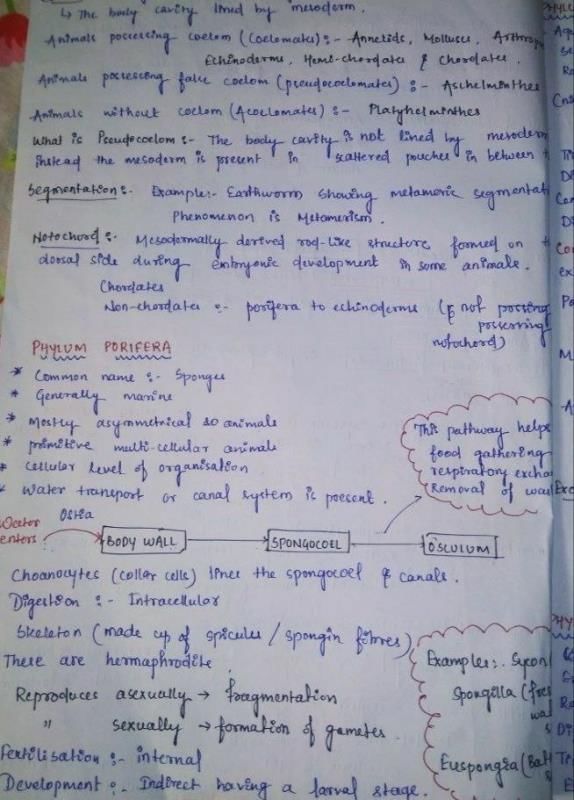 ↳ The body cavity lined by mesoderm.
Animals possessing coelom (Coelomates) :- Annelids, Molluscs, Arthrop
Echinoderms, Hemi-chordates & Chordates.
Animals possessing false coelom (pseudocoelomates) :- Aschelminthes
Animals without coelom (Acoelomates) :- Platyhelminthes
What is Pseudocoelom :- The body cavity is not lined by mesoderm
instead the mesoderm is present in scattered pouches in between t
Segmentation :- Example :- Earthworm showing metameric segmentati
Phenomenon is Metamerism.
Notochord :- Mesodermally derived rod-like structure formed on t
dorsal side during embryonic development in some animals.
Chordates
Non-chordates :- porifera to echinoderms (
not possessing
notochord)
PHYLUM PORIFERA
* Common name :- Sponges
* Generally marine
* Mostly asymmetrical so animals
* primitive multi-cellular animals
* Cellular level of organisation
* Water transport or canal system is present.
This pathway helps
food gathering
respiratory excha
Removal of was
Water enters
Ostia
BODY WALL
SPONGOCOEL
OSCULUM
Choanocytes (collar cells) lines the spongocoel & canals.
Digestion :- Intracellular
Skeleton (made up of spicules / spongin fibres)
There are hermaphrodite
Reproduces asexually → fragmentation
" sexually → formation of gametes.
Fertilisation :- internal
Development :- Indirect having a larval stage.
Examples :- Sycon
Spongilla (fres
wat
Euspongia (Bat